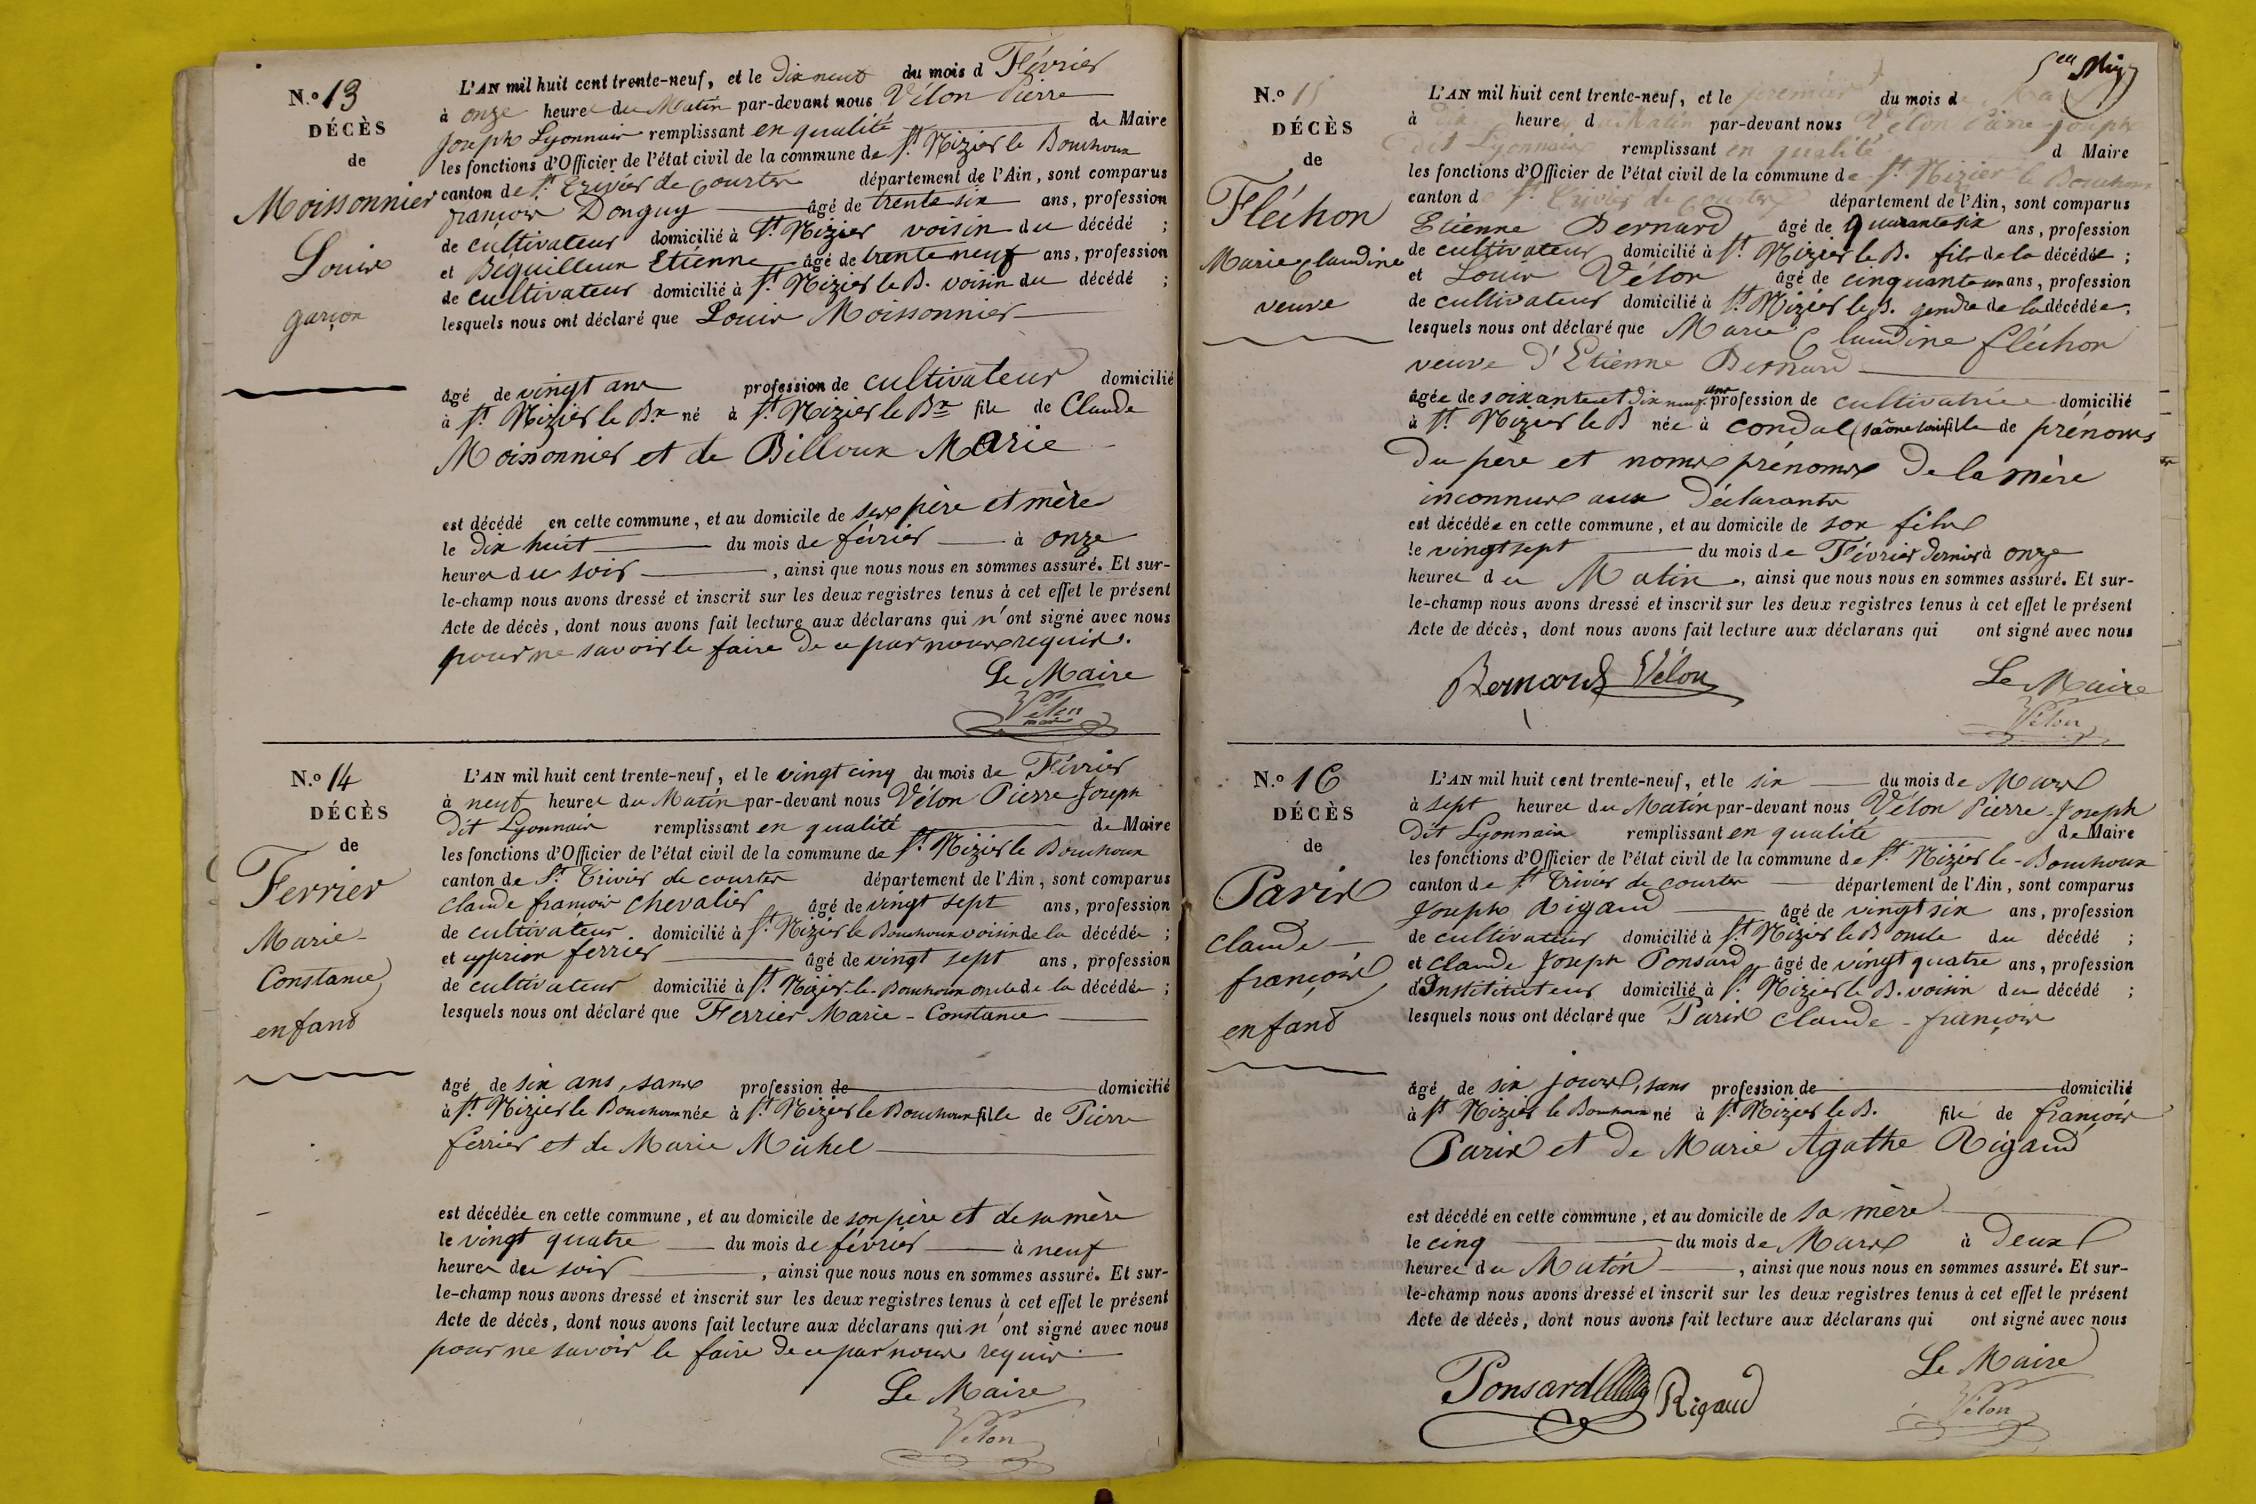 N.o 13
DÉCÈS
de
Moissonnier
Louis
garçon
L'AN mil huit cent trente-neuf, et le dix neuf du mois d Février
à onze heures du Matin par-devant nous Vélon Pierre
Joseph Lyonnais remplissant en qualité de Maire
les fonctions d'Officier de l'état civil de la commune de St. Nizier le Bouchoux
canton de St. Trivier de Courtes département de l'Ain, sont comparus
françois Donguy âgé de trente six ans, profession
de cultivateur domicilié à St. Nizier voisin du décédé ;
et Béguilleux Etienne âgé de trente neuf ans, profession
de cultivateur domicilié à St. Nizier le B. voisin du décédé ;
lesquels nous ont déclaré que Louis Moissonnier
âgé de vingt ans profession de cultivateur domicilié
à St. Nizier le Bx né à St. Nizier le Bx fils de Claude
Moissonnier et de Billoux Marie
est décédé en cette commune, et au domicile de ses père et mère
le dix huit du mois de février à onze
heures du soir, ainsi que nous nous en sommes assuré. Et sur-
le-champ nous avons dressé et inscrit sur les deux registres tenus à cet effet le présent
Acte de décès, dont nous avons fait lecture aux déclarans qui n'ont signé avec nous
pour ne savoir le faire de ce par nous requis.
Le Maire
Vélon
maire
N.o 14
DÉCÈS
de
Ferrier
Marie-
Constance
enfant
L'AN mil huit cent trente-neuf, et le vingt cinq du mois de Février
à neuf heures du Matin par-devant nous Vélon Pierre Joseph
dit Lyonnais remplissant en qualité de Maire
les fonctions d'Officier de l'état civil de la commune de St. Nizier le Bouchoux
canton de St. Trivier de courtes département de l'Ain, sont comparus
Claude françois chevalier âgé de vingt sept ans, profession
de cultivateur domicilié à St. Nizier le Bouchoux voisin de la décédée ;
et cyprien ferrier âgé de vingt sept ans, profession
de cultivateur domicilié à St. Nizier-le-Bouchoux oncle de la décédée ;
lesquels nous ont déclaré que Ferrier Marie-Constance
âgé de six ans, sans profession de domicilié
à St. Nizier le Bouchoux née à St. Nizier le Bouchoux fille de Pierre
ferrier et de Marie Michel
est décédée en cette commune, et au domicile de son père et de sa mère
le vingt quatre du mois de février à neuf
heures du soir, ainsi que nous nous en sommes assuré. Et sur-
le-champ nous avons dressé et inscrit sur les deux registres tenus à cet effet le présent
Acte de décès, dont nous avons fait lecture aux déclarans qui n'ont signé avec nous
pour ne savoir le faire de ce par nous requis.
Le Maire
Vélon
N.o 15
DÉCÈS
de
Fléchon
Marie Claudine
veuve
L'AN mil huit cent trente-neuf, et le premier du mois de Mars
à dix heure du Matin par-devant nous Vélon Pierre Joseph
dit Lyonnais remplissant en qualité d Maire
les fonctions d'Officier de l'état civil de la commune de St. Nizier le Bouchoux
canton de St. Trivier de courtes département de l'Ain, sont comparus
Etienne Bernard âgé de quarante six ans, profession
de cultivateur domicilié à St. Nizier le B. fils de la décédée ;
et Louis Vélon âgé de cinquante un ans, profession
de cultivateur domicilié à St. Nizier le B. gendre de la décédée ;
lesquels nous ont déclaré que Marie Claudine fléchon
veuve d'Etienne Bernard
âgée de soixante et dix neuf ans profession de cultivatrice domicilié
à St. Nizier le B née à condal (saône loire) fille de prénoms
du père et noms prénoms de la mère
inconnus aux déclarants
est décédée en cette commune, et au domicile de son fils
le vingt sept du mois de Février dernier à onze
heures du Matin, ainsi que nous nous en sommes assuré. Et sur-
le-champ nous avons dressé et inscrit sur les deux registres tenus à cet effet le présent
Acte de décès, dont nous avons fait lecture aux déclarans qui ont signé avec nous
Bernard Vélon
Le Maire
Vélon
N.o 16
DÉCÈS
de
Paris
claude-
françois
enfant
L'AN mil huit cent trente-neuf, et le six du mois de Mars
à sept heures du Matin par-devant nous Vélon Pierre-Joseph
dit Lyonnais remplissant en qualité de Maire
les fonctions d'Officier de l'état civil de la commune de St. Nizier-le-Bouchoux
canton de St. Trivier de courtes département de l'Ain, sont comparus
Joseph Rigaud âgé de vingt six ans, profession
de cultivateur domicilié à St. Nizier le B oncle du décédé ;
et Claude Joseph Ponsard âgé de vingt quatre ans, profession
d'Instituteur domicilié à St. Nizier le B. voisin du décédé ;
lesquels nous ont déclaré que Paris Claude-françois
âgé de six jours, sans profession de domicilié
à St Nizier le Bouchoux né à St. Nizier le B. fils de françois
Paris et de Marie Agathe Rigaud
est décédé en cette commune, et au domicile de sa mère
le cinq du mois de Mars à Deux
heures du Matin, ainsi que nous nous en sommes assuré. Et sur-
le-champ nous avons dressé et inscrit sur les deux registres tenus à cet effet le présent
Acte de décès, dont nous avons fait lecture aux déclarans qui ont signé avec nous
Ponsard Rigaud
Le Maire
Vélon